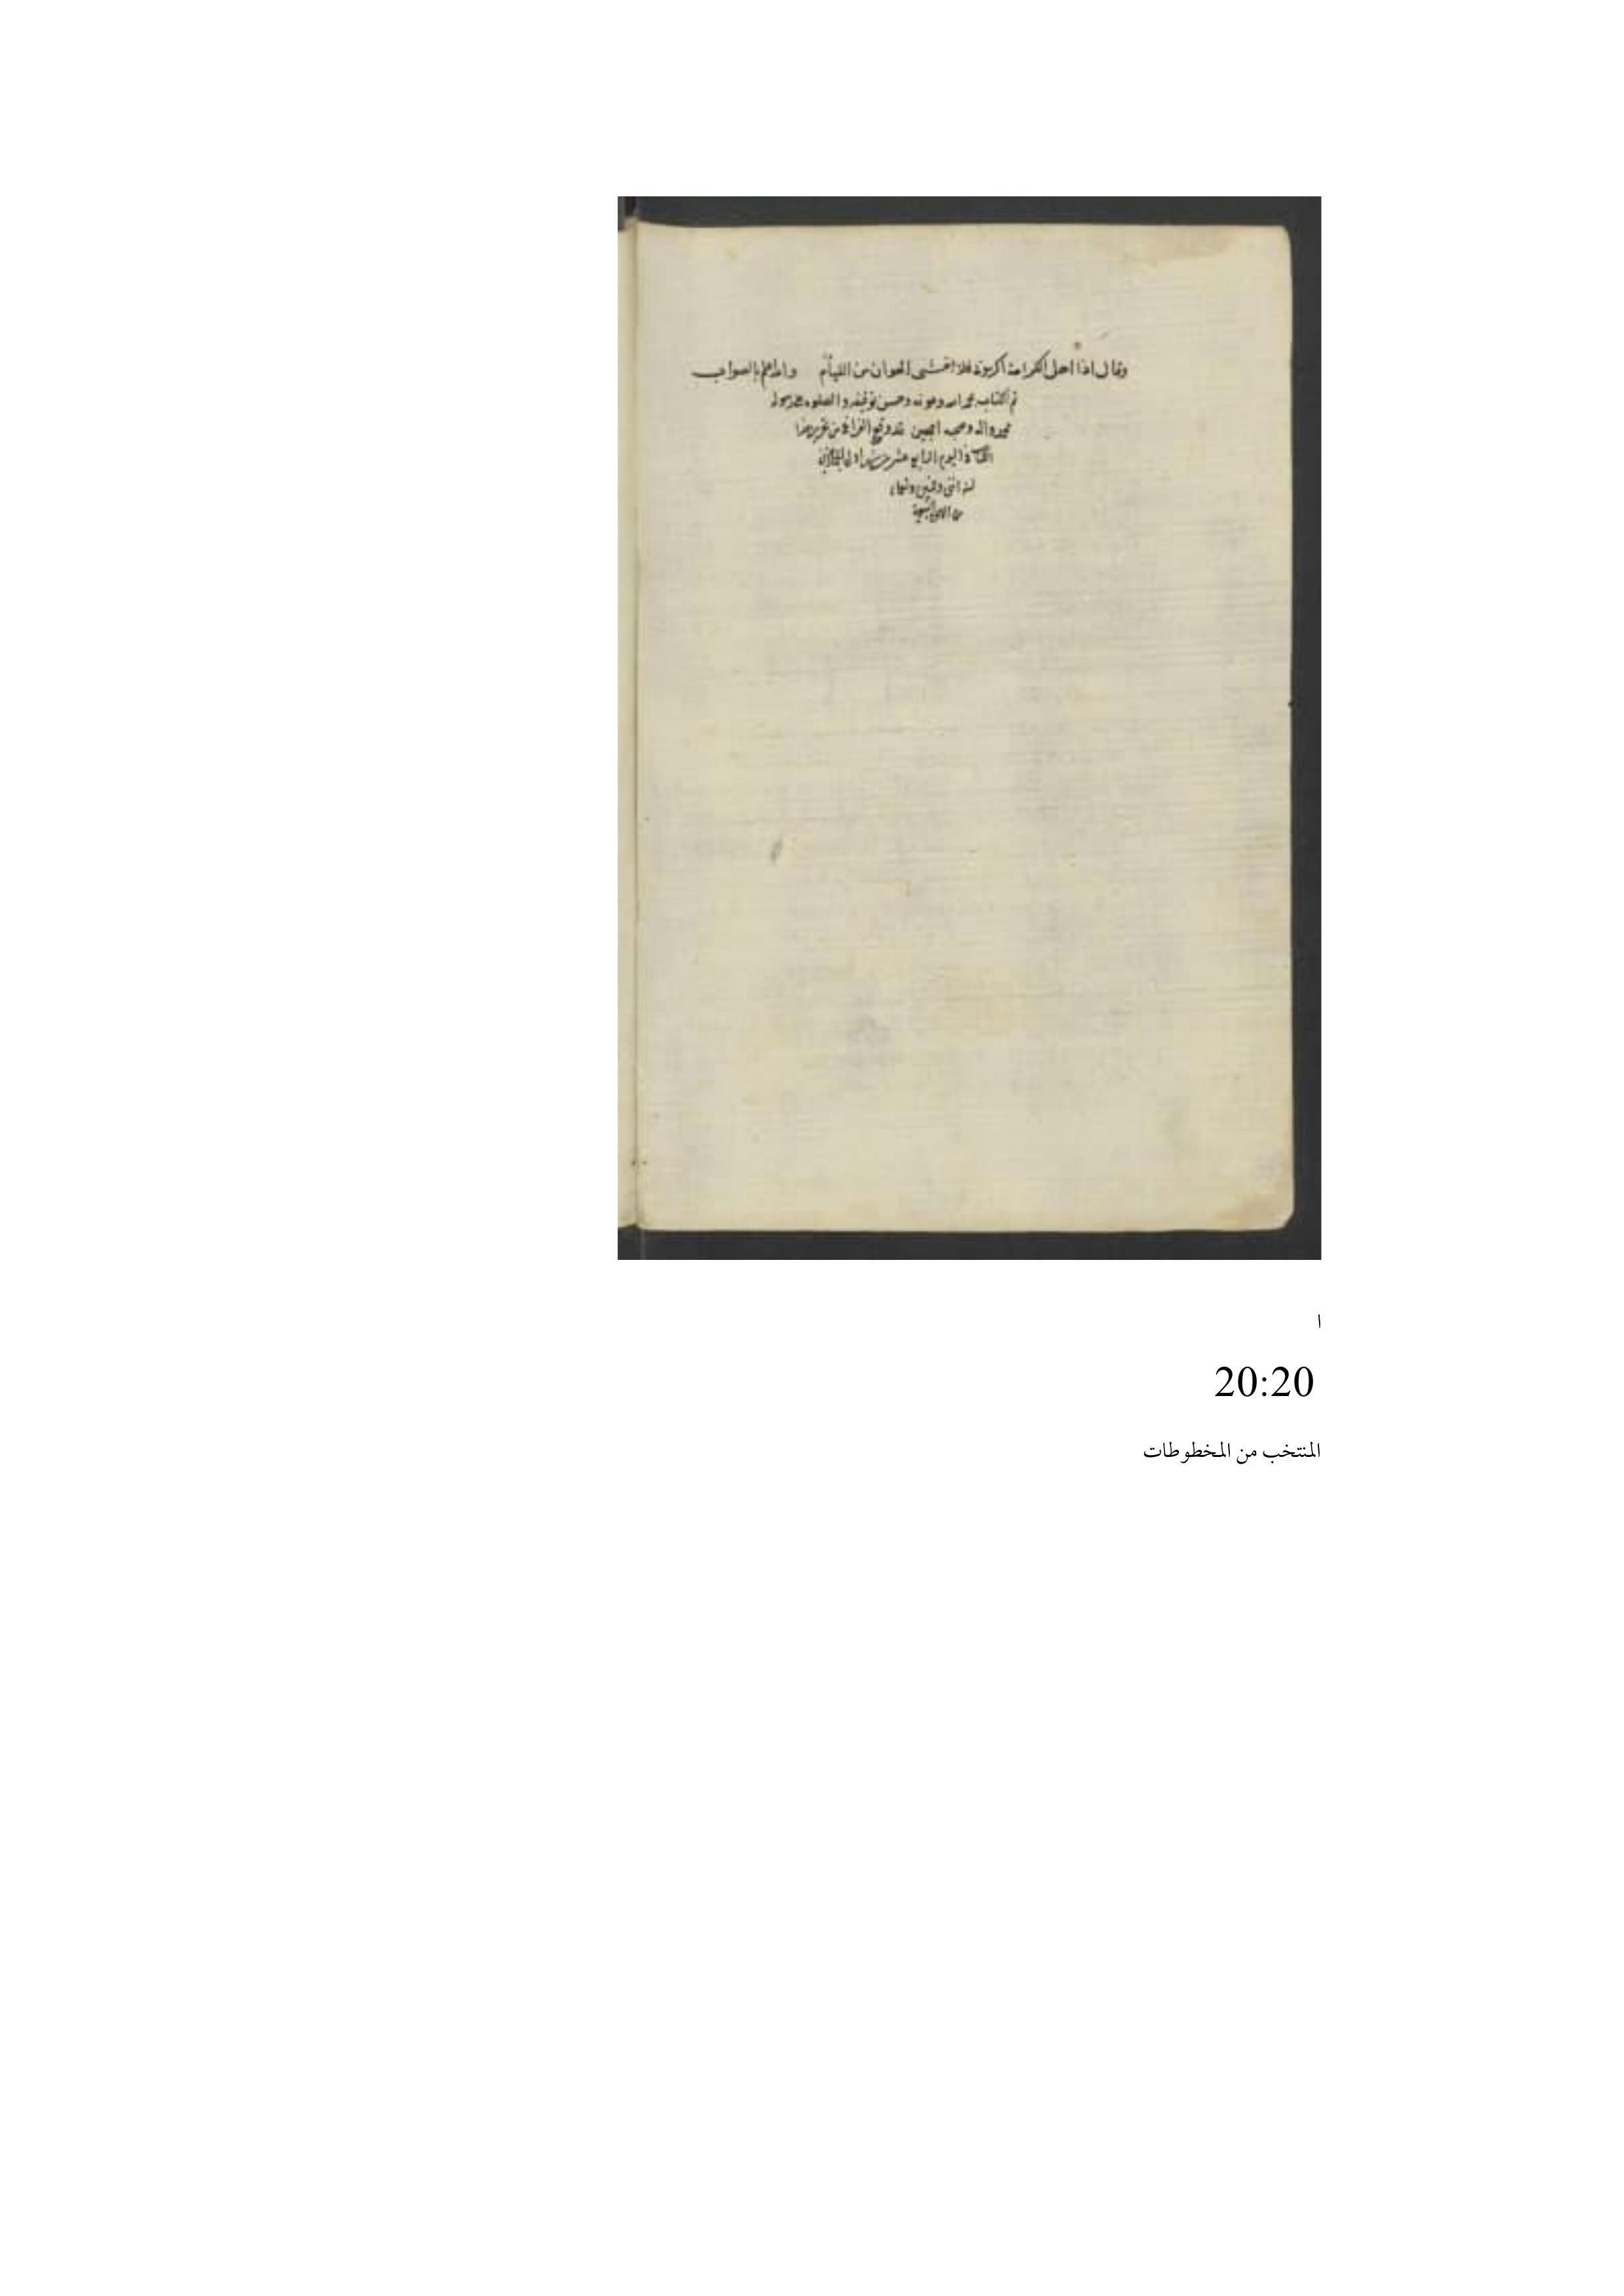 وقال اذا اهل الكرامة اكرمونى فلا اخشى الهوان من الليأم والله اعلم بالصواب
تم الكتاب بحمد الله وعونه وحسن توفيقه والصلوة على رسوله
محمد واله وصحبه اجمعين قد وقع الفراغ من تحرير هذا
الكتاب فى اليوم الرابع عشر من شهر
سنة اثنى
من
ا
20:20
المنتخب من المخطوطات